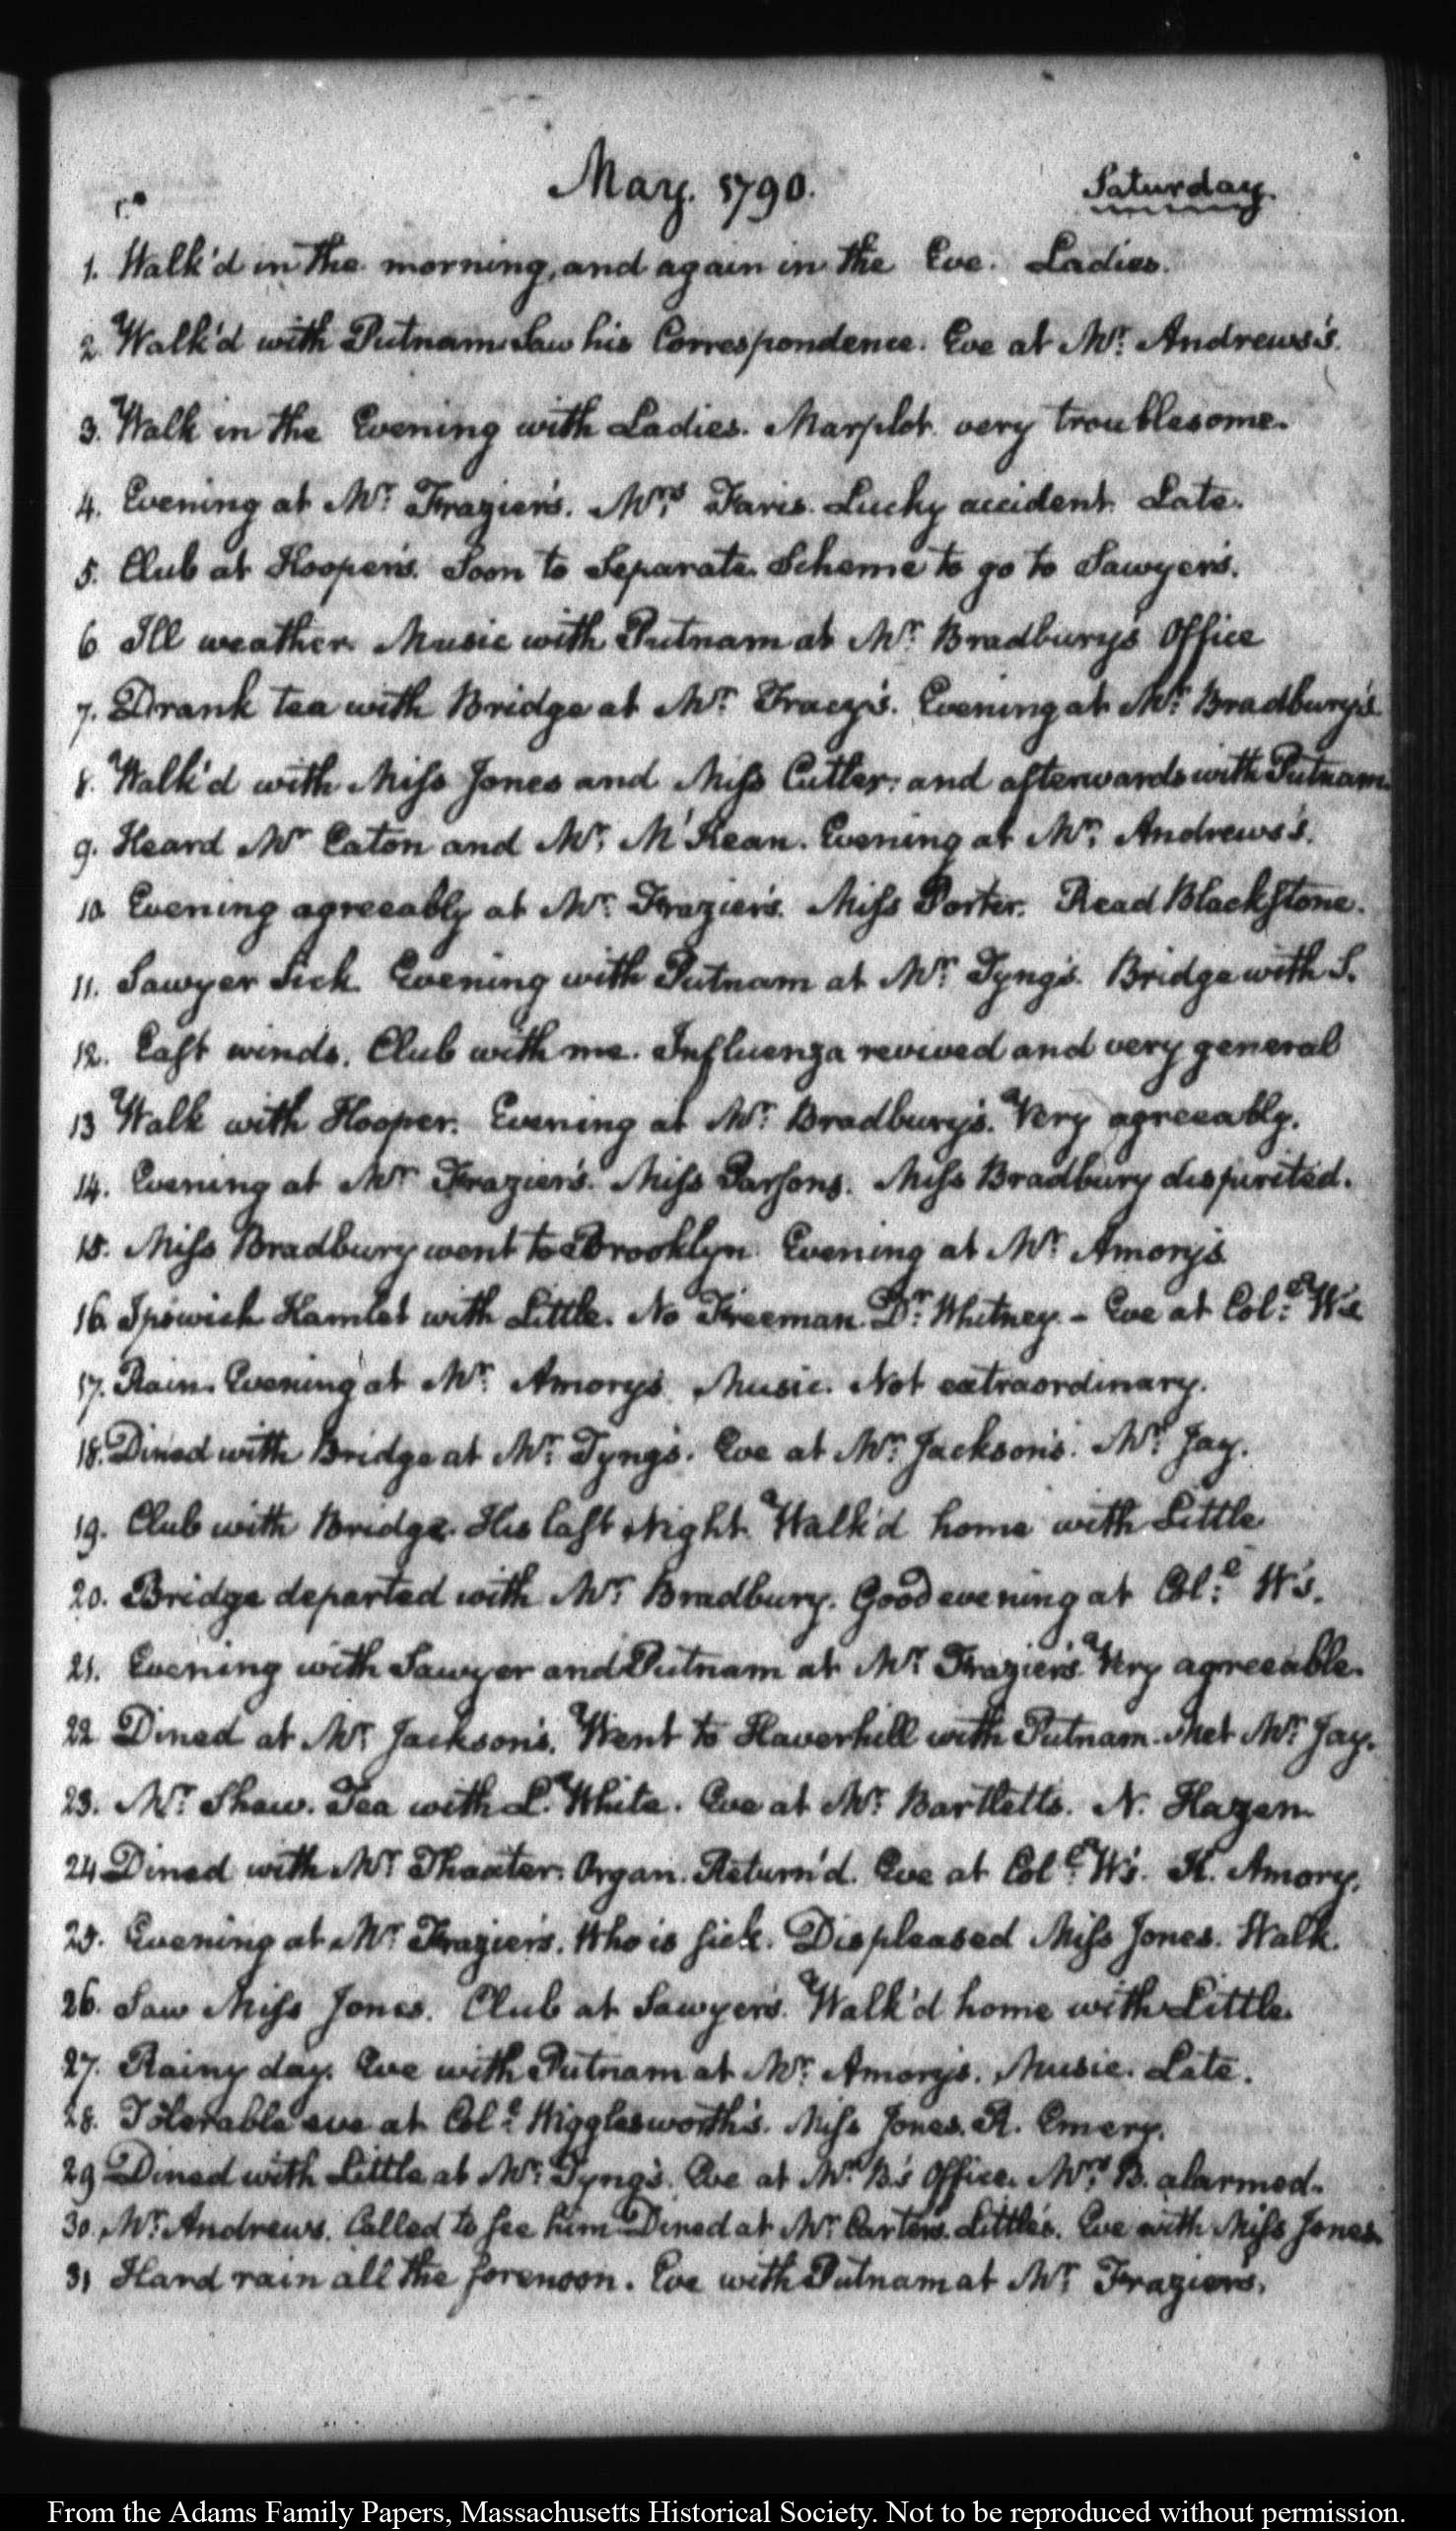 May. 1790.
Saturday.
1. Walk'd in the morning, and again in the Eve. Ladies.
2. Walk'd with Putnam. Saw his Correspondence. Eve at Mr. Andrews's.
3. Walk in the Evening with Ladies. Marplot very troublesome.
4. Evening at Mr. Frazier's. Mrs. Faris. Lucky accident. Late.
5. Club at Hooper's. Soon to Separate. Scheme to go to Sawyer's.
6. Ill weather. Music with Putnam at Mr. Bradbury's Office
7. Drank tea with Bridge at Mr. Tracy's. Evening at Mr. Bradbury's
8. Walk'd with Miss Jones and Miss Cutler; and afterwards with Putnam.
9. Heard Mr. Eaton and Mr. M'Kean. Evening at Mr. Andrews's.
10. Evening agreeably at Mr. Frazier's. Miss Porter. Read Blackstone.
11. Sawyer Sick. Evening with Putnam at Mr. Tyng's. Bridge with S.
12. East winds. Club with me. Influenza revived and very general
13 Walk with Hooper. Evening at Mr. Bradbury's. Very agreeably.
14. Evening at Mr. Frazier's. Miss Parsons. Miss Bradbury dispirited.
15. Miss Bradbury went to Brooklyn. Evening at Mr. Amory's
16. Ipswich Hamlet with Little. No Freeman. Dr. Whitney. - Eve at Col:o W's
17. Rain. Evening at Mr. Amory's. Music. Not extraordinary.
18. Dined with Bridge at Mr. Tyng's. Eve at Mr. Jackson's. Mr. Jay.
19. Club with Bridge. His last Night. Walk'd home with Little
20. Bridge departed with Mr. Bradbury. Good evening at Col:o W's.
21. Evening with Sawyer and Putnam at Mr. Frazier's. Very agreeable.
22 Dined at Mr. Jackson's. Went to Haverhill with Putnam. Met Mr. Jay.
23. Mr. Shaw. Tea with L. White. Eve at Mr. Bartletts. N. Hazen
24 Dined with Mr. Thaxter. Organ. Return'd. Eve at Colo. W's. K. Amory.
25. Evening at Mr. Frazier's. Who is sick. Displeased Miss Jones. Walk.
26. Saw Miss Jones. Club at Sawyer's. Walk'd home with Little.
27. Rainy day. Eve with Putnam at Mr. Amory's. Music. Late.
28. Tolerable eve at Colo. Wigglesworth's. Miss Jones. R. Emery.
29 Dined with Little at Mr. Tyng's. Eve at Mr. B's Office. Mrs. B. alarmed.
30. Mr. Andrews. Called to see him. Dined at Mr. Carter's. Little's. Eve with Miss Jones.
31 Hard rain all the forenoon. Eve with Putnam at Mr. Frazier's.
From the Adams Family Papers, Massachusetts Historical Society. Not to be reproduced without permission.